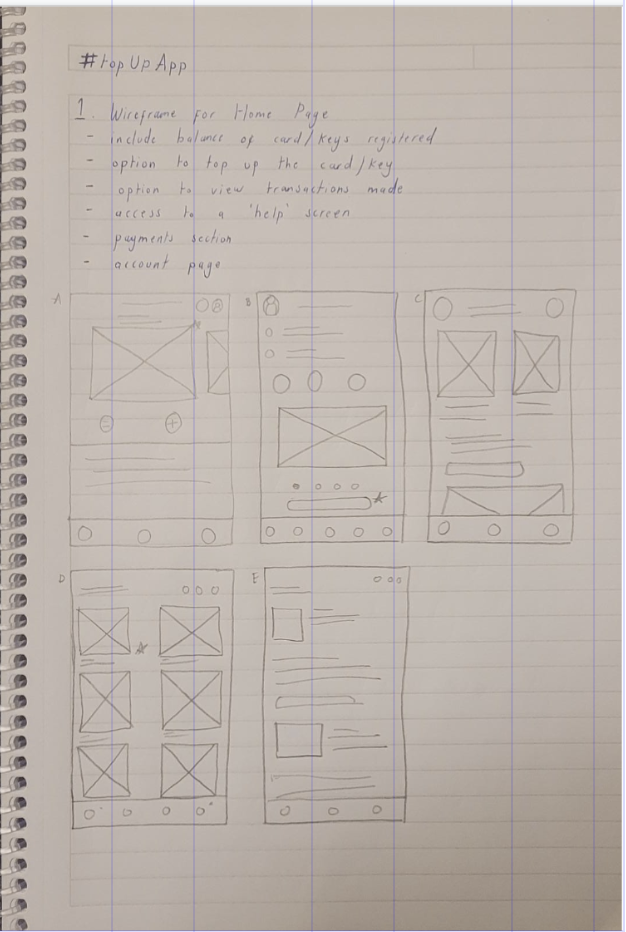 #topUpApp
1. Wireframe for Home Page
- include balance of card/keys registered
- option to top up the card/key
- option to view transactions made
- access to a 'help' screen
- payments section
- account page
A
B
C
D
E